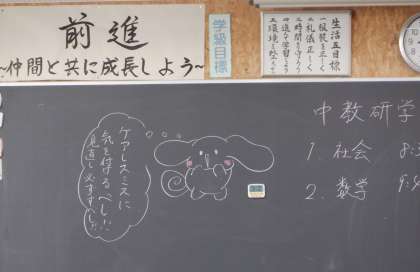 前進
~仲間と共に成長しよう~
学級目標
生活五目標
一服装を正しく
二礼儀正しく
三時間を守ろう
四進んで学習しよう
五環境を整えよう
ケアレスミスに
気を付けるべし!!
見直し必ずすべし!!
中教研学
1. 社会 8:
2. 数学 9:
10
9
8